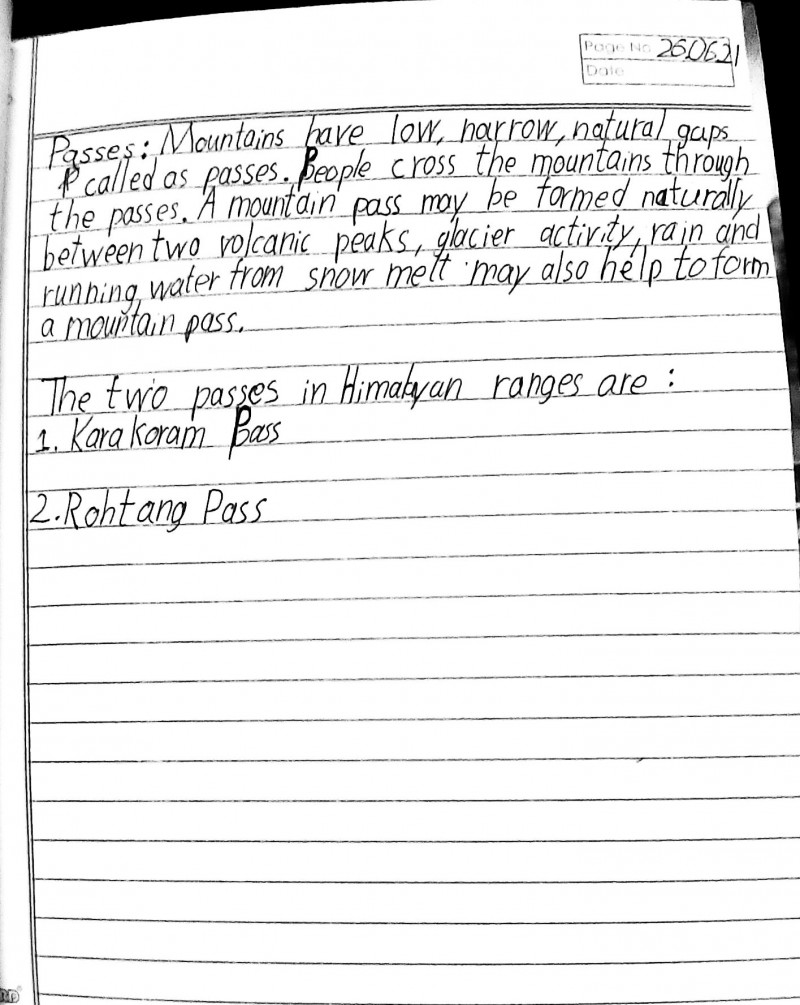 Page No 26.06.21
Date
Passes: Mountains have low, narrow, natural gaps
called as passes. People cross the mountains through
the passes. A mountain pass may be formed naturally
between two volcanic peaks, glacier activity, rain and
running water from snow melt may also help to form
a mountain pass.
The two passes in Himalyan ranges are :
1. Karakoram Pass
2. Rohtang Pass